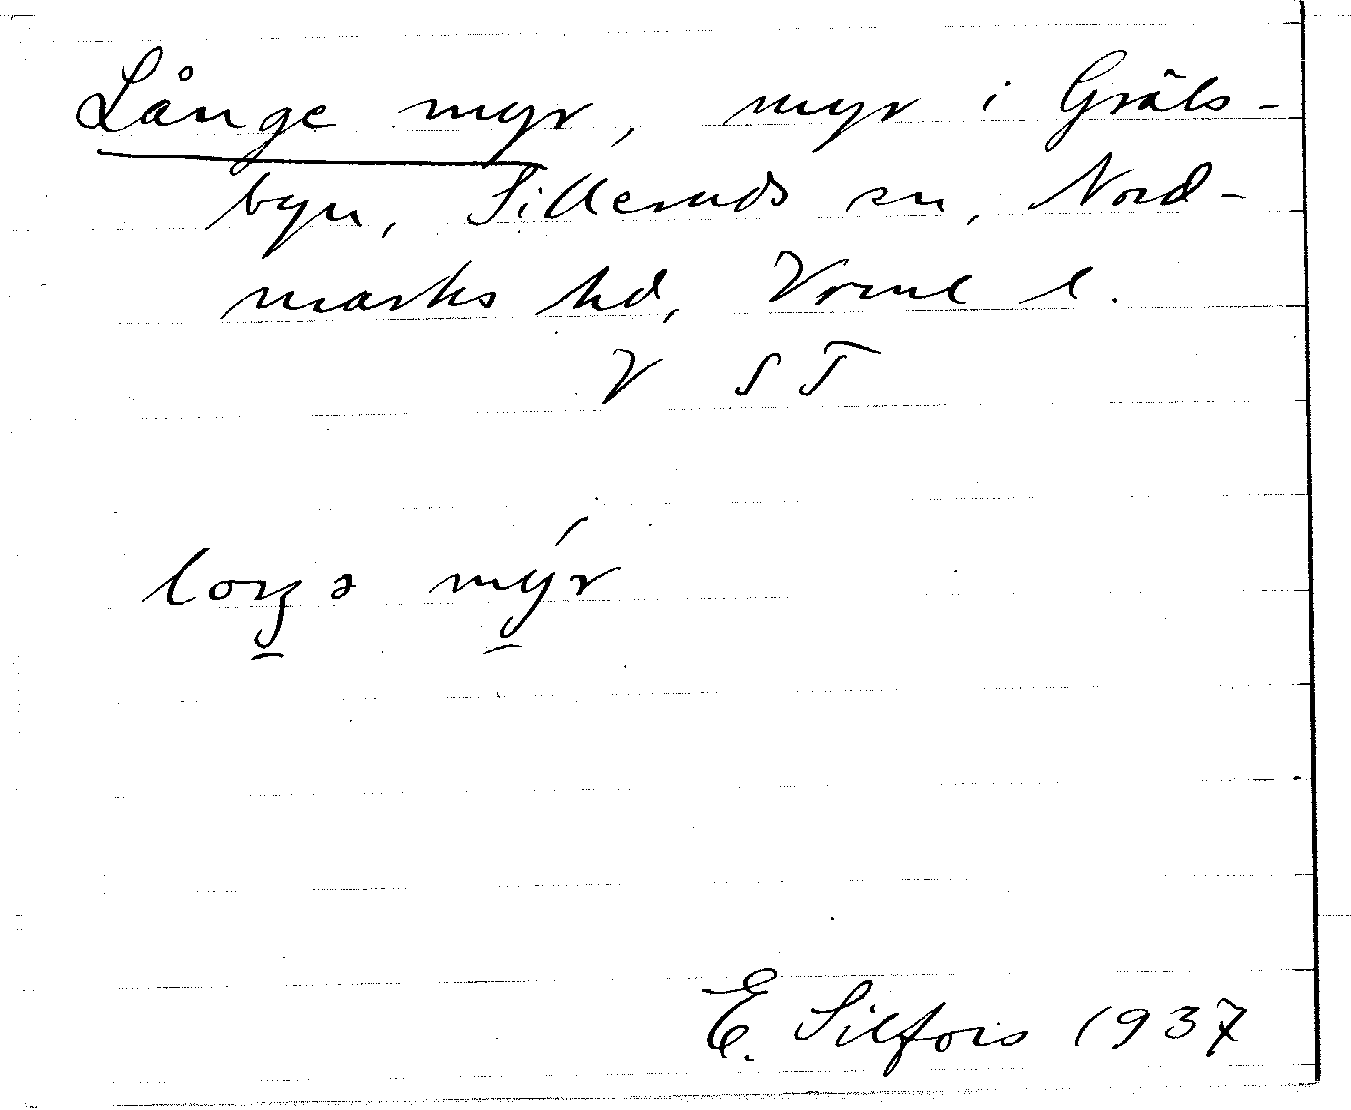 Långe myr, myr i Gräls-
byn, Silleruds sn, Nord-
marks hd, Vrml l.
V ST
loŋə mýr
E. Silfors 1937